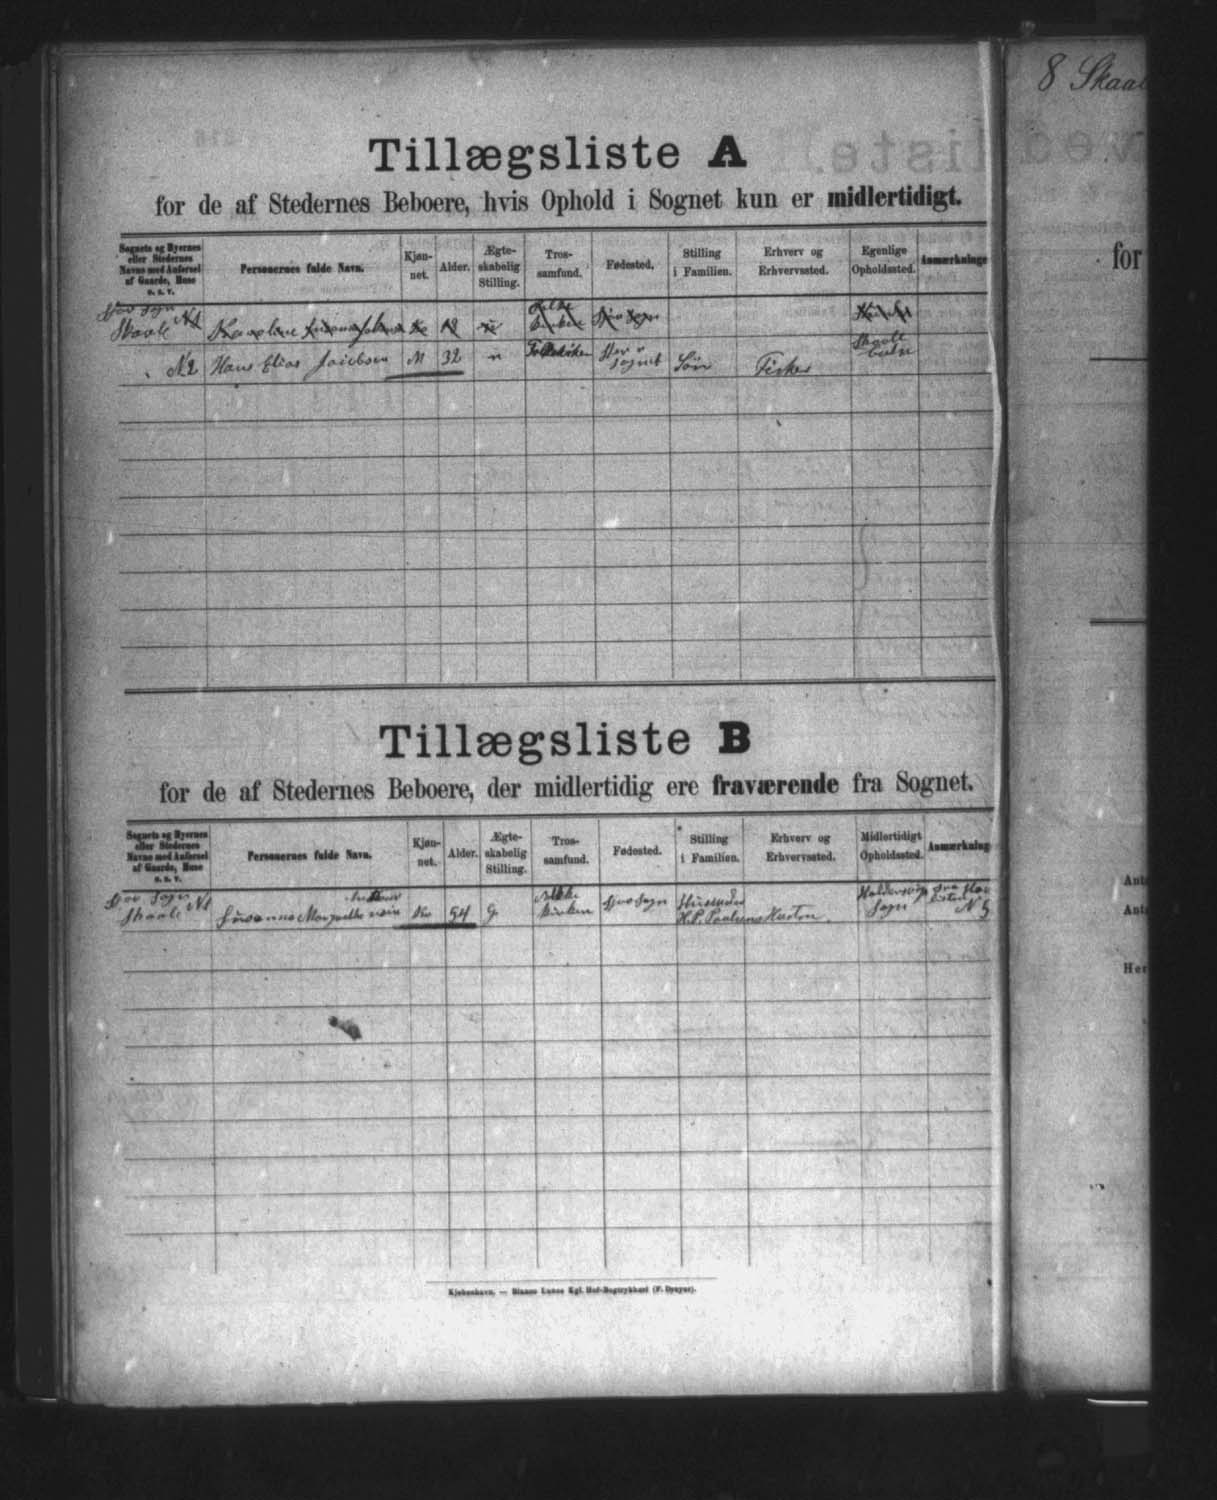 8 Skaal
Tillægsliste A
for de af Stedernes Beboere, hvis Ophold i Sognet kun er midlertidigt.
Sognets og Byernes eller Stedernes Navne med Anførsel af Gaarde, Huse o. s. v.
Personernes fulde Navn.
Kjøn-net.
Alder.
Ægte-skabelig Stilling.
Tros-samfund.
Fødested.
Stilling i Familien.
Erhverv og Erhvervssted.
Egenlige Opholdssted.
Anmærkninge
Sogn
Skaale N1
N2 Hans Elias Jacobsen M 32 u Folkekirken Her i Sognet Søn Fisker Skaale
Tillægsliste B
for de af Stedernes Beboere, der midlertidig ere fraværende fra Sognet.
Sognets og Byernes eller Stedernes Navne med Anførsel af Gaarde, Huse o. s. v.
Personernes fulde Navn.
Kjøn-net.
Alder.
Ægte-skabelig Stilling.
Tros-samfund.
Fødested.
Stilling i Familien.
Erhverv og Erhvervssted.
Midlertidigt Opholdssted.
Anmærkning
Sogn
Skaale N1 Susanna Margrethe Kv 54 G. Kirken Sogn H. P. Poulsens Hustru. Sogn N 5
Kjøbenhavn. — Bianco Lunos Kgl. Hof-Bogtrykkeri (F. Dreyer).
for
Ant
Ant
Her